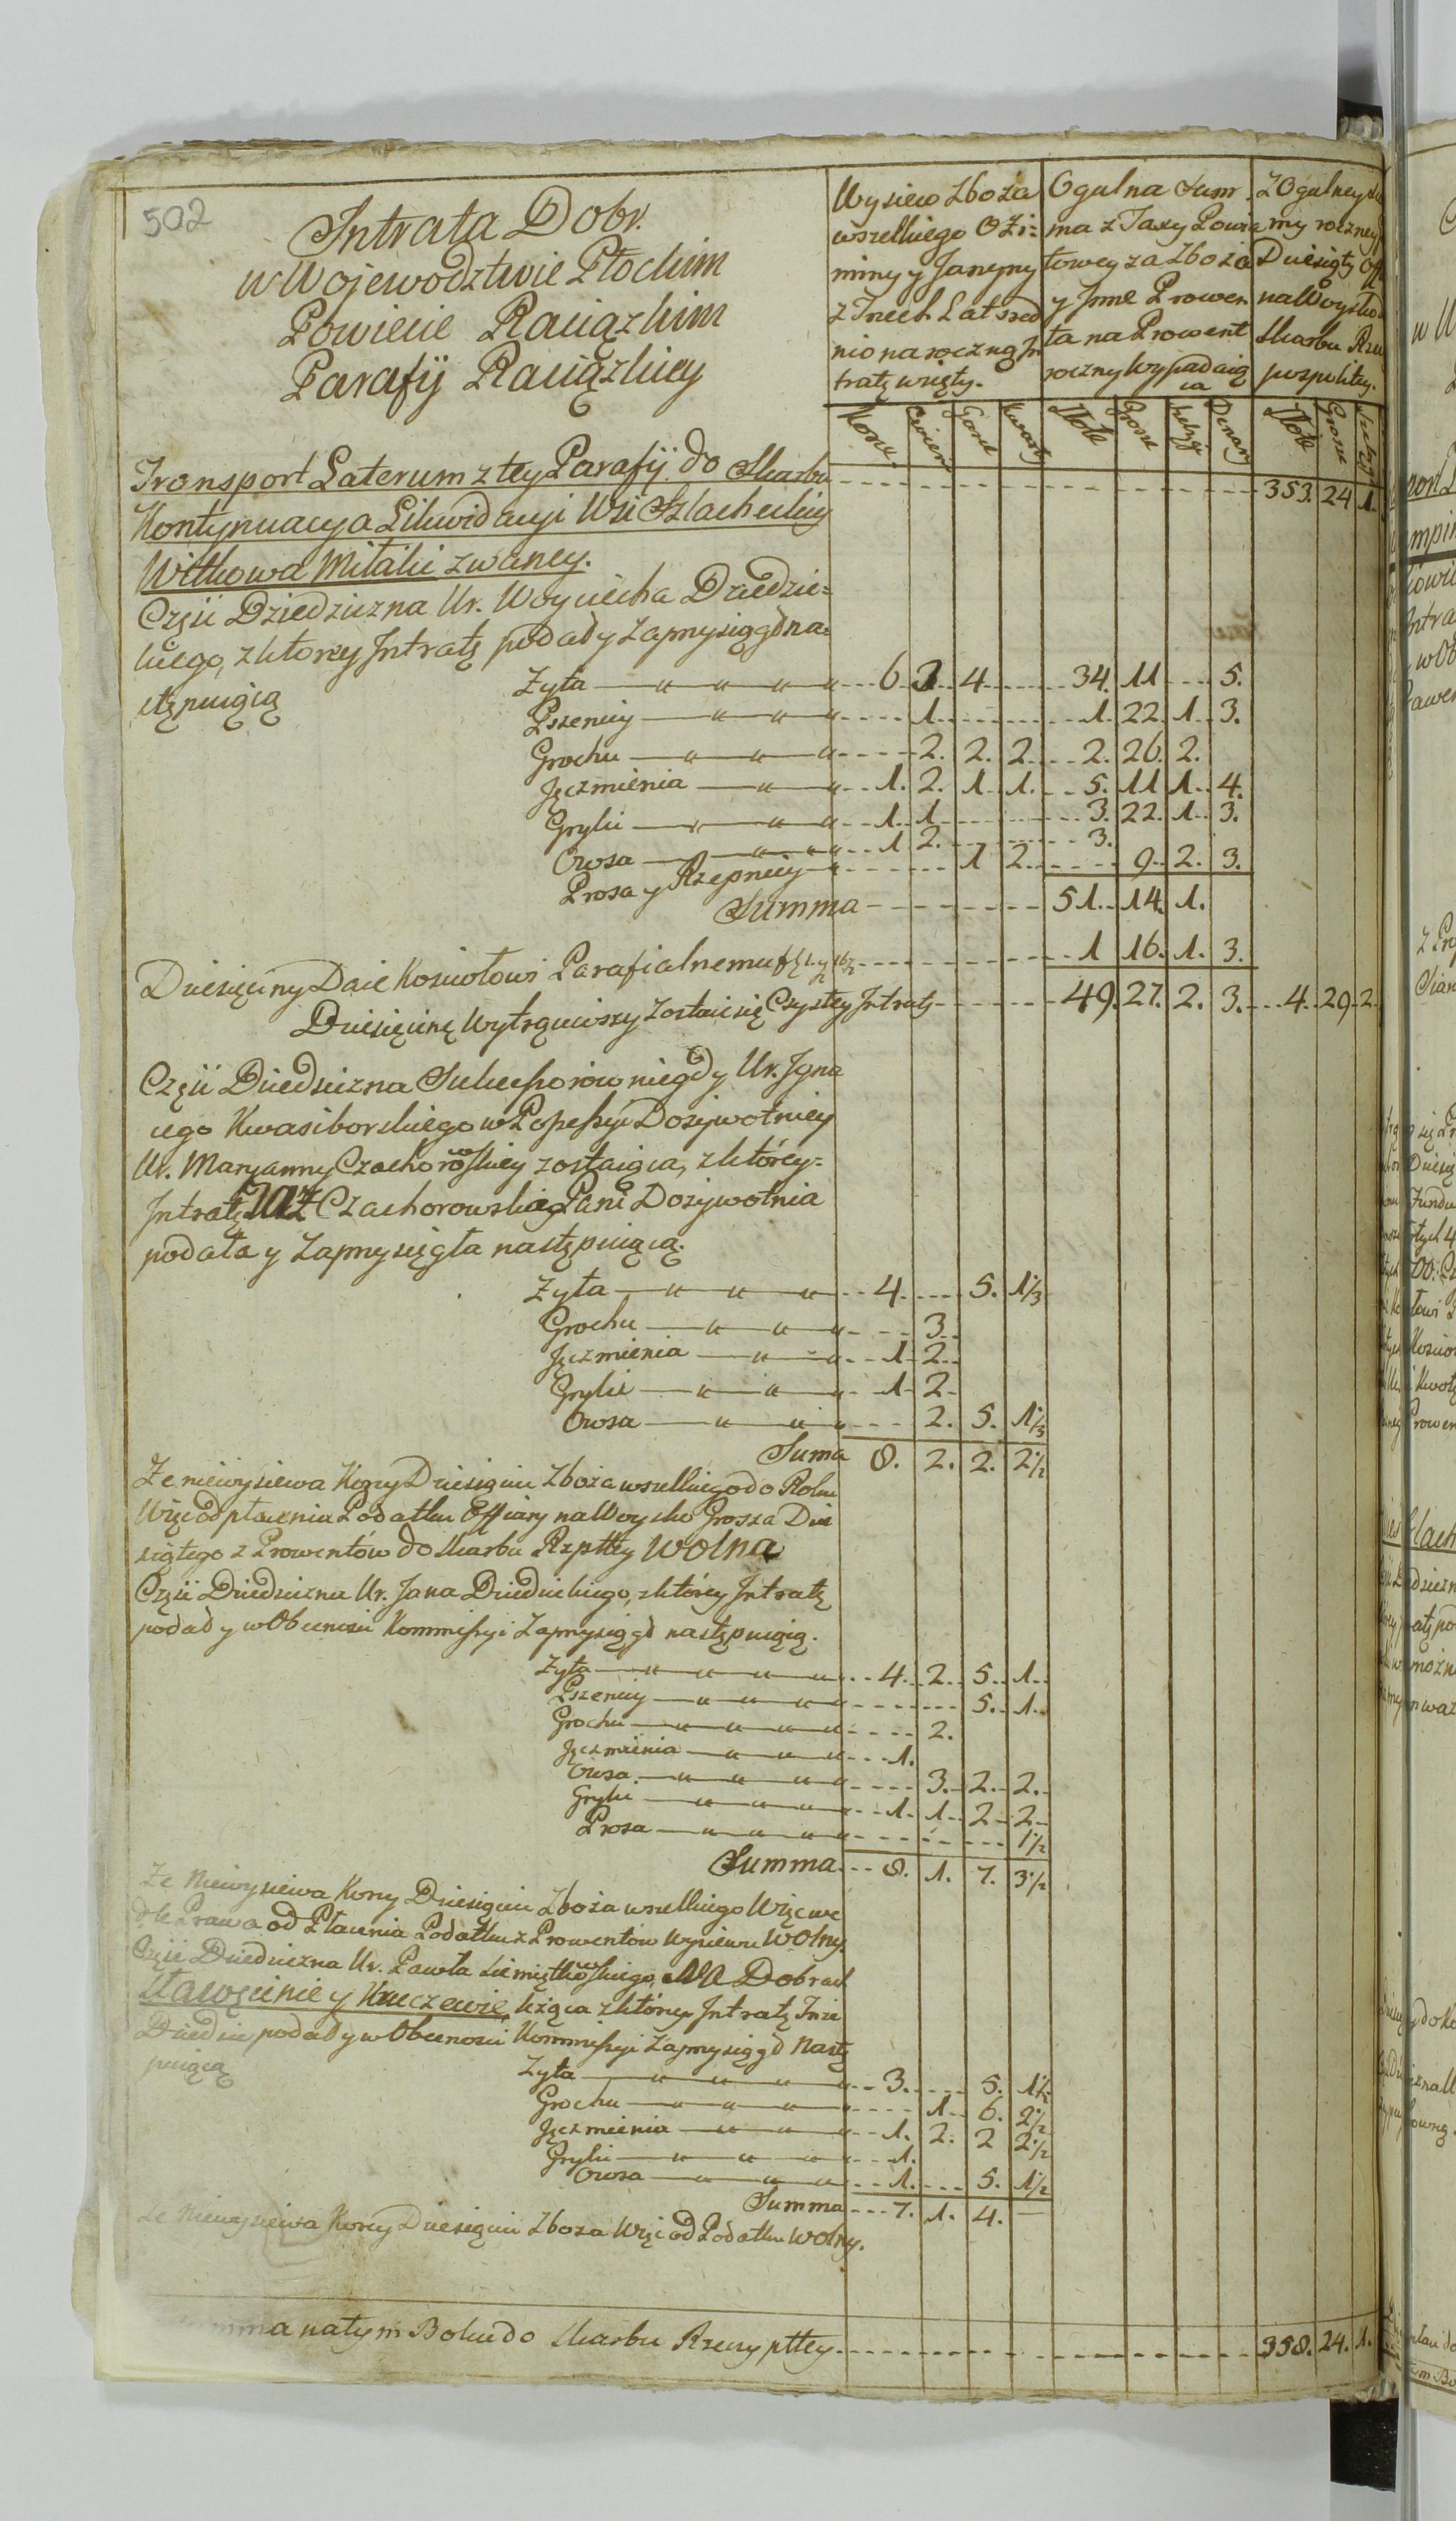 502
Intrata Dobr.
w Wojewodztwie Płockim
Powiecie Raciązkim
Parafij Raciązkiey
Wysiew Zboża
wszelkiego Ozi:
miny y Jarzyny
z Trzech Lat sred
nio na roczną In
tratę wzięty.
Ogulna Sum
ma z Taxy Powia
towey za Zboża
y Inne Prowen
ta na Prowent
roczny wypadaią
ca
Z Ogulney Su
my roczney
Dziesiąty
na Woysko
Skarbu Rze
pospolitey.
Korce Cwierci Garce Kwarty Złote Grosze Szelągi Denary Złote Grosze Szelągi
Transport Laterum z tey Parafij do Skarbu 353. 24 1.
Kontynuacya Likwidacyi Wsi Szlacheckiey
Witkowa Mitaki zwaney.
Części Dziedziczna Ur. Woyciecha Dziedzic=
kiego, z ktorey Intratę podał y zaprzysiągł na=
stępuiącą
Zyta 6. 3. 4 34. 11 5.
Pszenicy 1. 1. 22. 1. 3.
Grochu 2. 2. 2. 2. 26. 2.
Jęczmienia 1. 2. 1. 1. 5. 11 1. 4.
Gryki 1. 1 3. 22. 1. 3.
Owsa 1 2. 3.
Prosa y Rzepnicy 1 2. 9. 2. 3.
Summa 51. 14. 1.
Dziesięciny Daie Kosciołowi Parafialnemu 1 16. 1. 3.
Dziesięcinę wytrąciwszy zostaie się Czystey Intraty 49. 27. 2. 3. 4. 29. 2
Części Dziedziczna Sukcessorow niegdy Ur. Igna
cego Kwasiborskiego w Possessyi Dozywotniey
Ur. Maryanny Czachorowskiey zostaiąca, z którey=
Intratę Taż Czachorowska Pani Dozywotnia
podała y zaprzysięgła następuiącą.
Zyta 4. 5. 1 1/3
Grochu 3.
Jęczmienia 1 2.
Gryki 1 2
Owsa 2. 5. 1 1/3
Suma 8. 2. 2. 2 1/2
Ze niewysiewa Korcy Dziesięciu Zboża wszelkiego do Roku
Więc od płacenia Podatku Offiary na Woysko Grosza Dzie
siątego z Prowentów do Skarbu Rzpltey wolna
Części Dziedziczna Ur. Jana Dziedzickiego, z ktorey Intratę
podał y w Obecnosci Kommissyi Zaprzysiągł następuiącą.
Zyta 4. 2. 5. 1.
Pszenicy 5. 1.
Grochu 2.
Jęczmienia 1.
Owsa 3. 2. 2.
Gryki 1. 1. 2. 2.
Prosa 1 1/2
Summa 8. 1. 7. 3 1/2
Ze Niewysiewa Korcy Dziesięciu Zboża wszelkiego Więc we
dle Prawa od Płacenia Podatku z Prowentów Wysiewu Wolny.
Części Dziedziczna Ur. Pawła Siemiątkowskiego, Na Dobrach
Sławęcinie y Kruczewie leżąca z ktorey Intratę Tenże
Dziedzic podał y w Obecnosci Kommissyi zaprzysiągł Nastę
puiącą
Zyta 3. 5. 1 1/2
Grochu 1. 6. 2 1/2
Jęczmienia 1. 2. 2 2 1/2
Gryki 1.
Owsa 1. 5. 1 1/2
Summa 7. 1. 4. —
Ze Niewysiewa Korcy Dziesięciu Zboza Więc od Podatku wolny.
Summa na tym Boku do Skarbu Rzeczypltey 358. 24. 1.